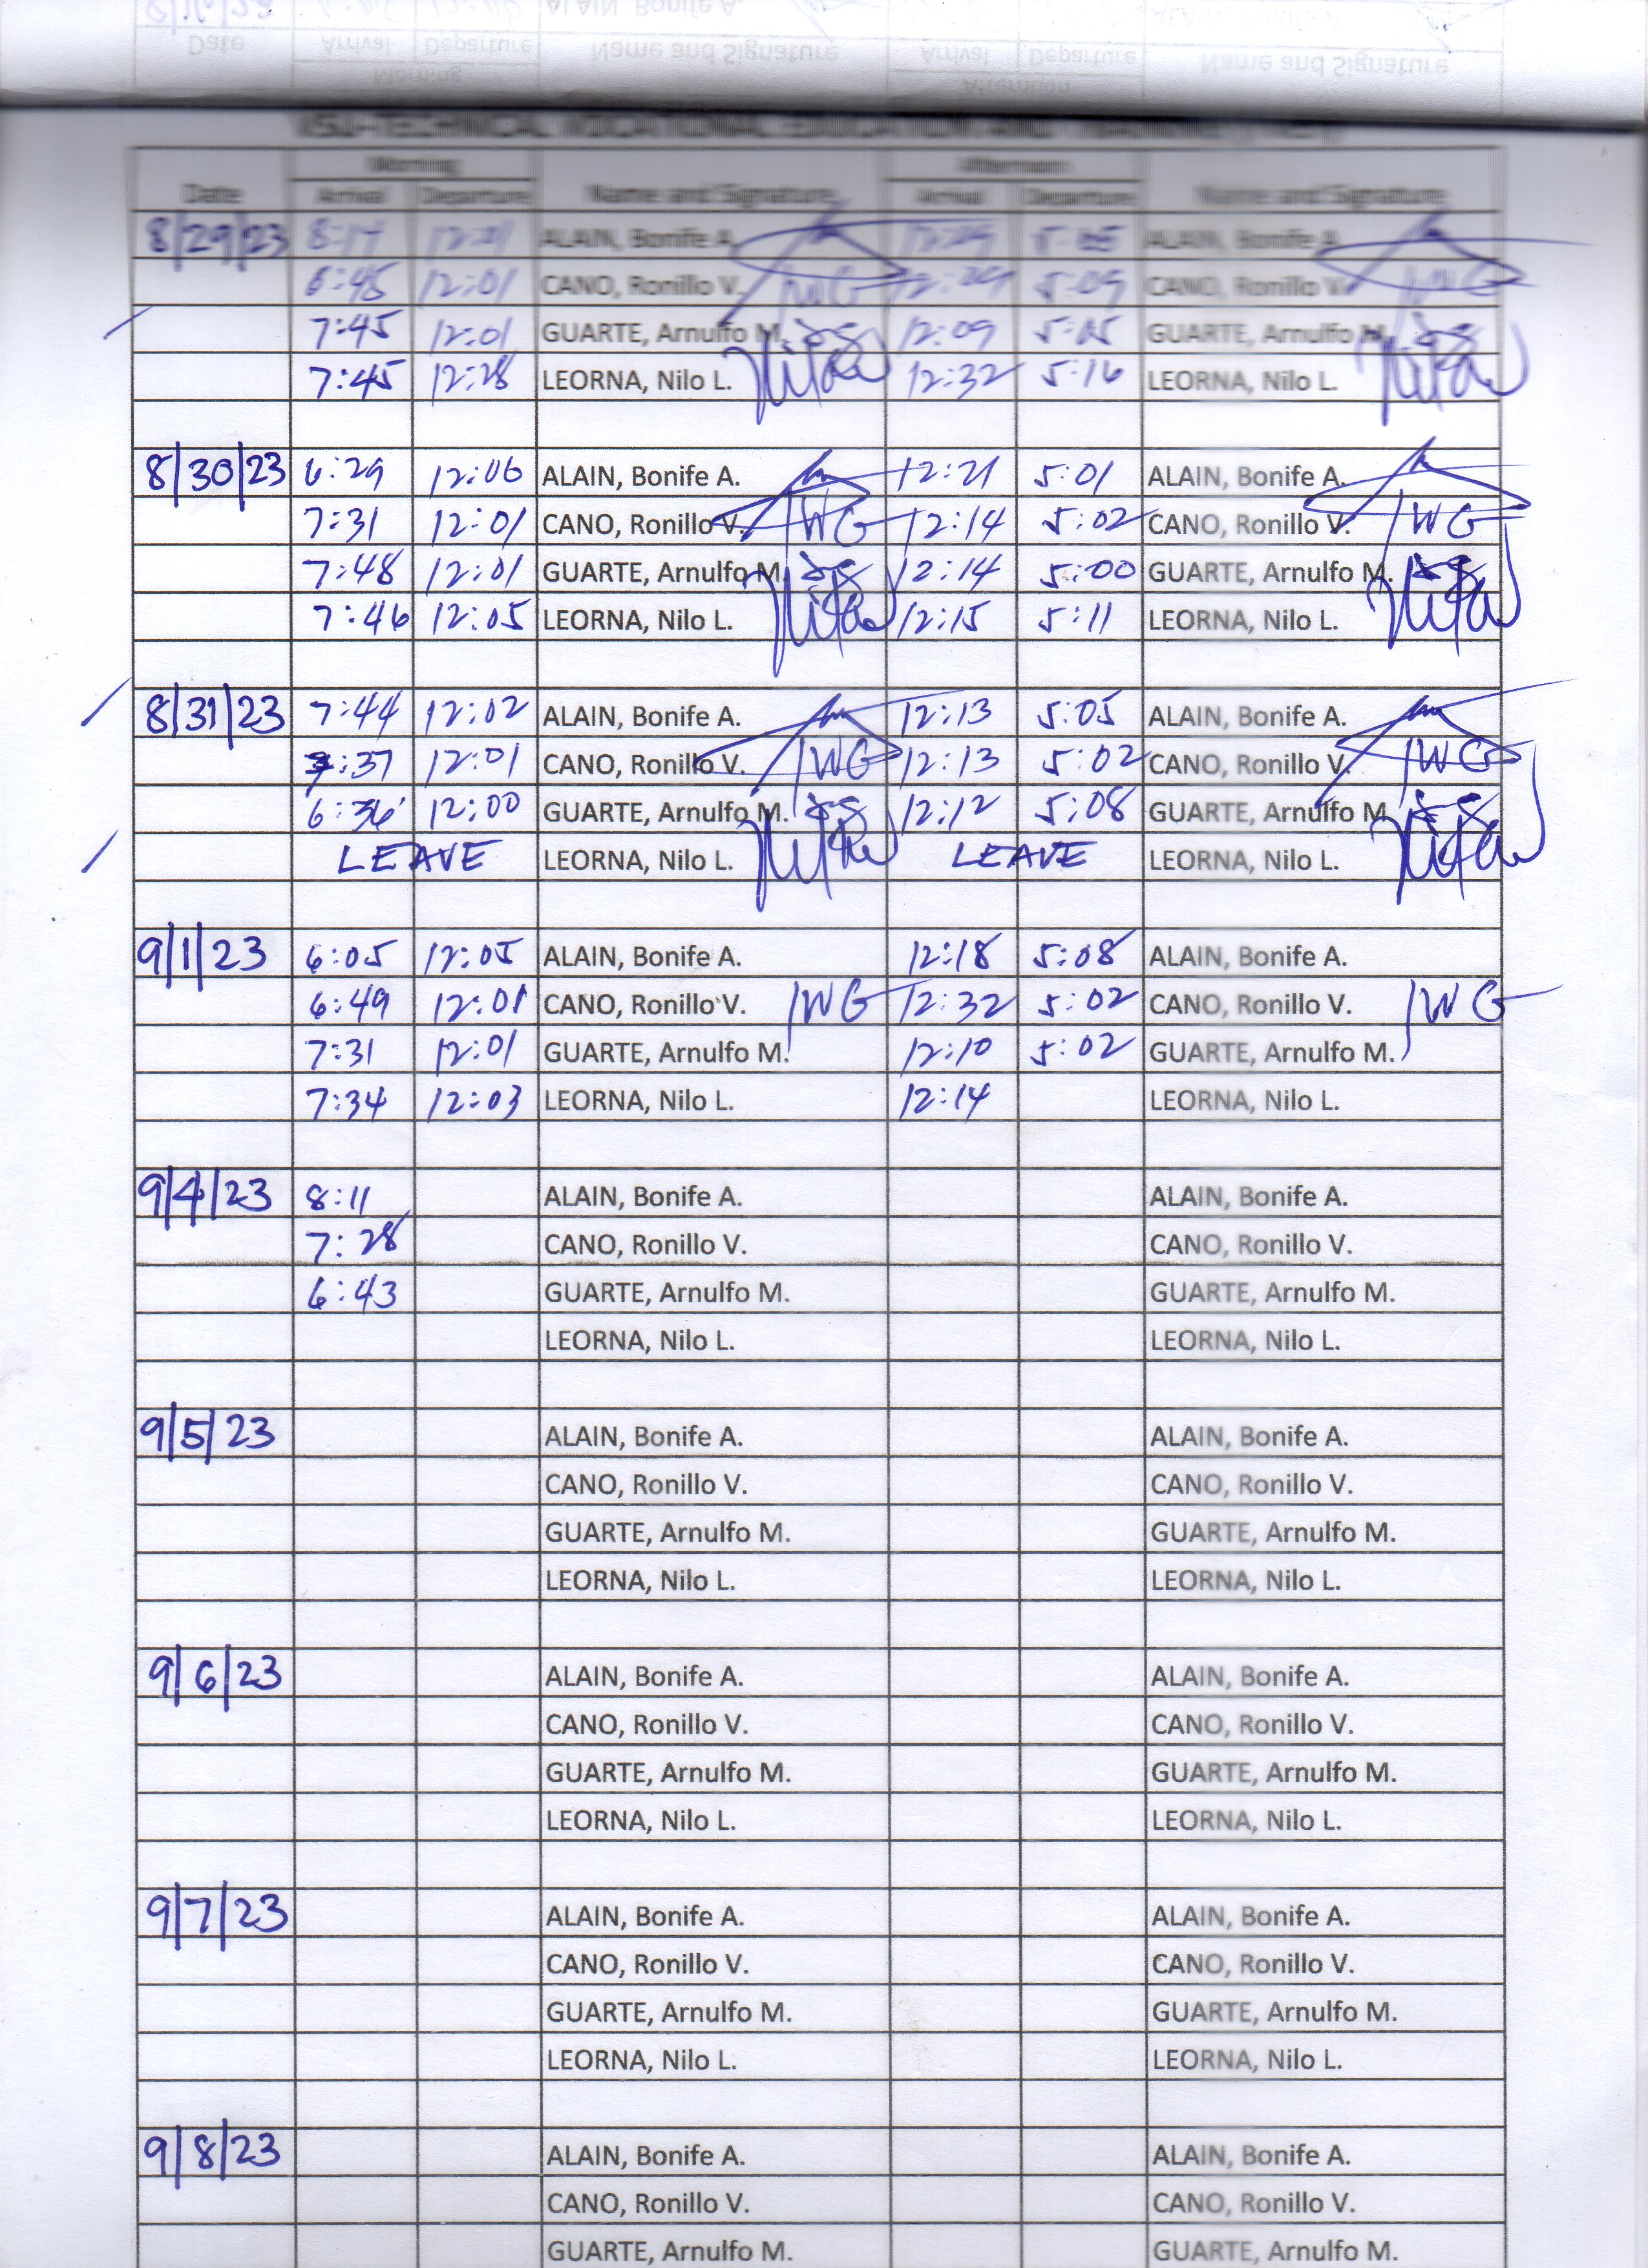 Date Arrival Departure Name and Signature Arrival Departure Name and Signature
Morning Afternoon
Morning Afternoon
Date Arrival Departure Name and Signature Arrival Departure Name and Signature
8/29/23 ALAIN, Bonife A. ALAIN, Bonife A.
6:45 12:01 CANO, Ronillo V. 5:09 CANO, Ronillo V.
7:45 12:01 GUARTE, Arnulfo M. 12:09 5:05 GUARTE, Arnulfo M.
7:45 12:28 LEORNA, Nilo L. 12:32 5:16 LEORNA, Nilo L.
8/30/23 6:29 12:06 ALAIN, Bonife A. 12:21 5:01 ALAIN, Bonife A.
7:31 12:01 CANO, Ronillo V. 12:14 5:02 CANO, Ronillo V.
7:48 12:01 GUARTE, Arnulfo M. 12:14 5:00 GUARTE, Arnulfo M.
7:46 12:05 LEORNA, Nilo L. 12:15 5:11 LEORNA, Nilo L.
8/31/23 7:44 12:02 ALAIN, Bonife A. 12:13 5:05 ALAIN, Bonife A.
12:01 CANO, Ronillo V. 12:13 5:02 CANO, Ronillo V.
6:36 12:00 GUARTE, Arnulfo M. 12:12 5:08 GUARTE, Arnulfo M.
LEAVE LEORNA, Nilo L. LEAVE LEORNA, Nilo L.
9/1/23 6:05 12:05 ALAIN, Bonife A. 12:18 5:08 ALAIN, Bonife A.
6:49 12:01 CANO, Ronillo V. 12:32 5:02 CANO, Ronillo V.
7:31 12:01 GUARTE, Arnulfo M. 12:10 5:02 GUARTE, Arnulfo M.
7:34 12:03 LEORNA, Nilo L. 12:14 LEORNA, Nilo L.
9/4/23 8:11 ALAIN, Bonife A. ALAIN, Bonife A.
7:28 CANO, Ronillo V. CANO, Ronillo V.
6:43 GUARTE, Arnulfo M. GUARTE, Arnulfo M.
LEORNA, Nilo L. LEORNA, Nilo L.
9/5/23 ALAIN, Bonife A. ALAIN, Bonife A.
CANO, Ronillo V. CANO, Ronillo V.
GUARTE, Arnulfo M. GUARTE, Arnulfo M.
LEORNA, Nilo L. LEORNA, Nilo L.
9/6/23 ALAIN, Bonife A. ALAIN, Bonife A.
CANO, Ronillo V. CANO, Ronillo V.
GUARTE, Arnulfo M. GUARTE, Arnulfo M.
LEORNA, Nilo L. LEORNA, Nilo L.
9/7/23 ALAIN, Bonife A. ALAIN, Bonife A.
CANO, Ronillo V. CANO, Ronillo V.
GUARTE, Arnulfo M. GUARTE, Arnulfo M.
LEORNA, Nilo L. LEORNA, Nilo L.
9/8/23 ALAIN, Bonife A. ALAIN, Bonife A.
CANO, Ronillo V. CANO, Ronillo V.
GUARTE, Arnulfo M. GUARTE, Arnulfo M.